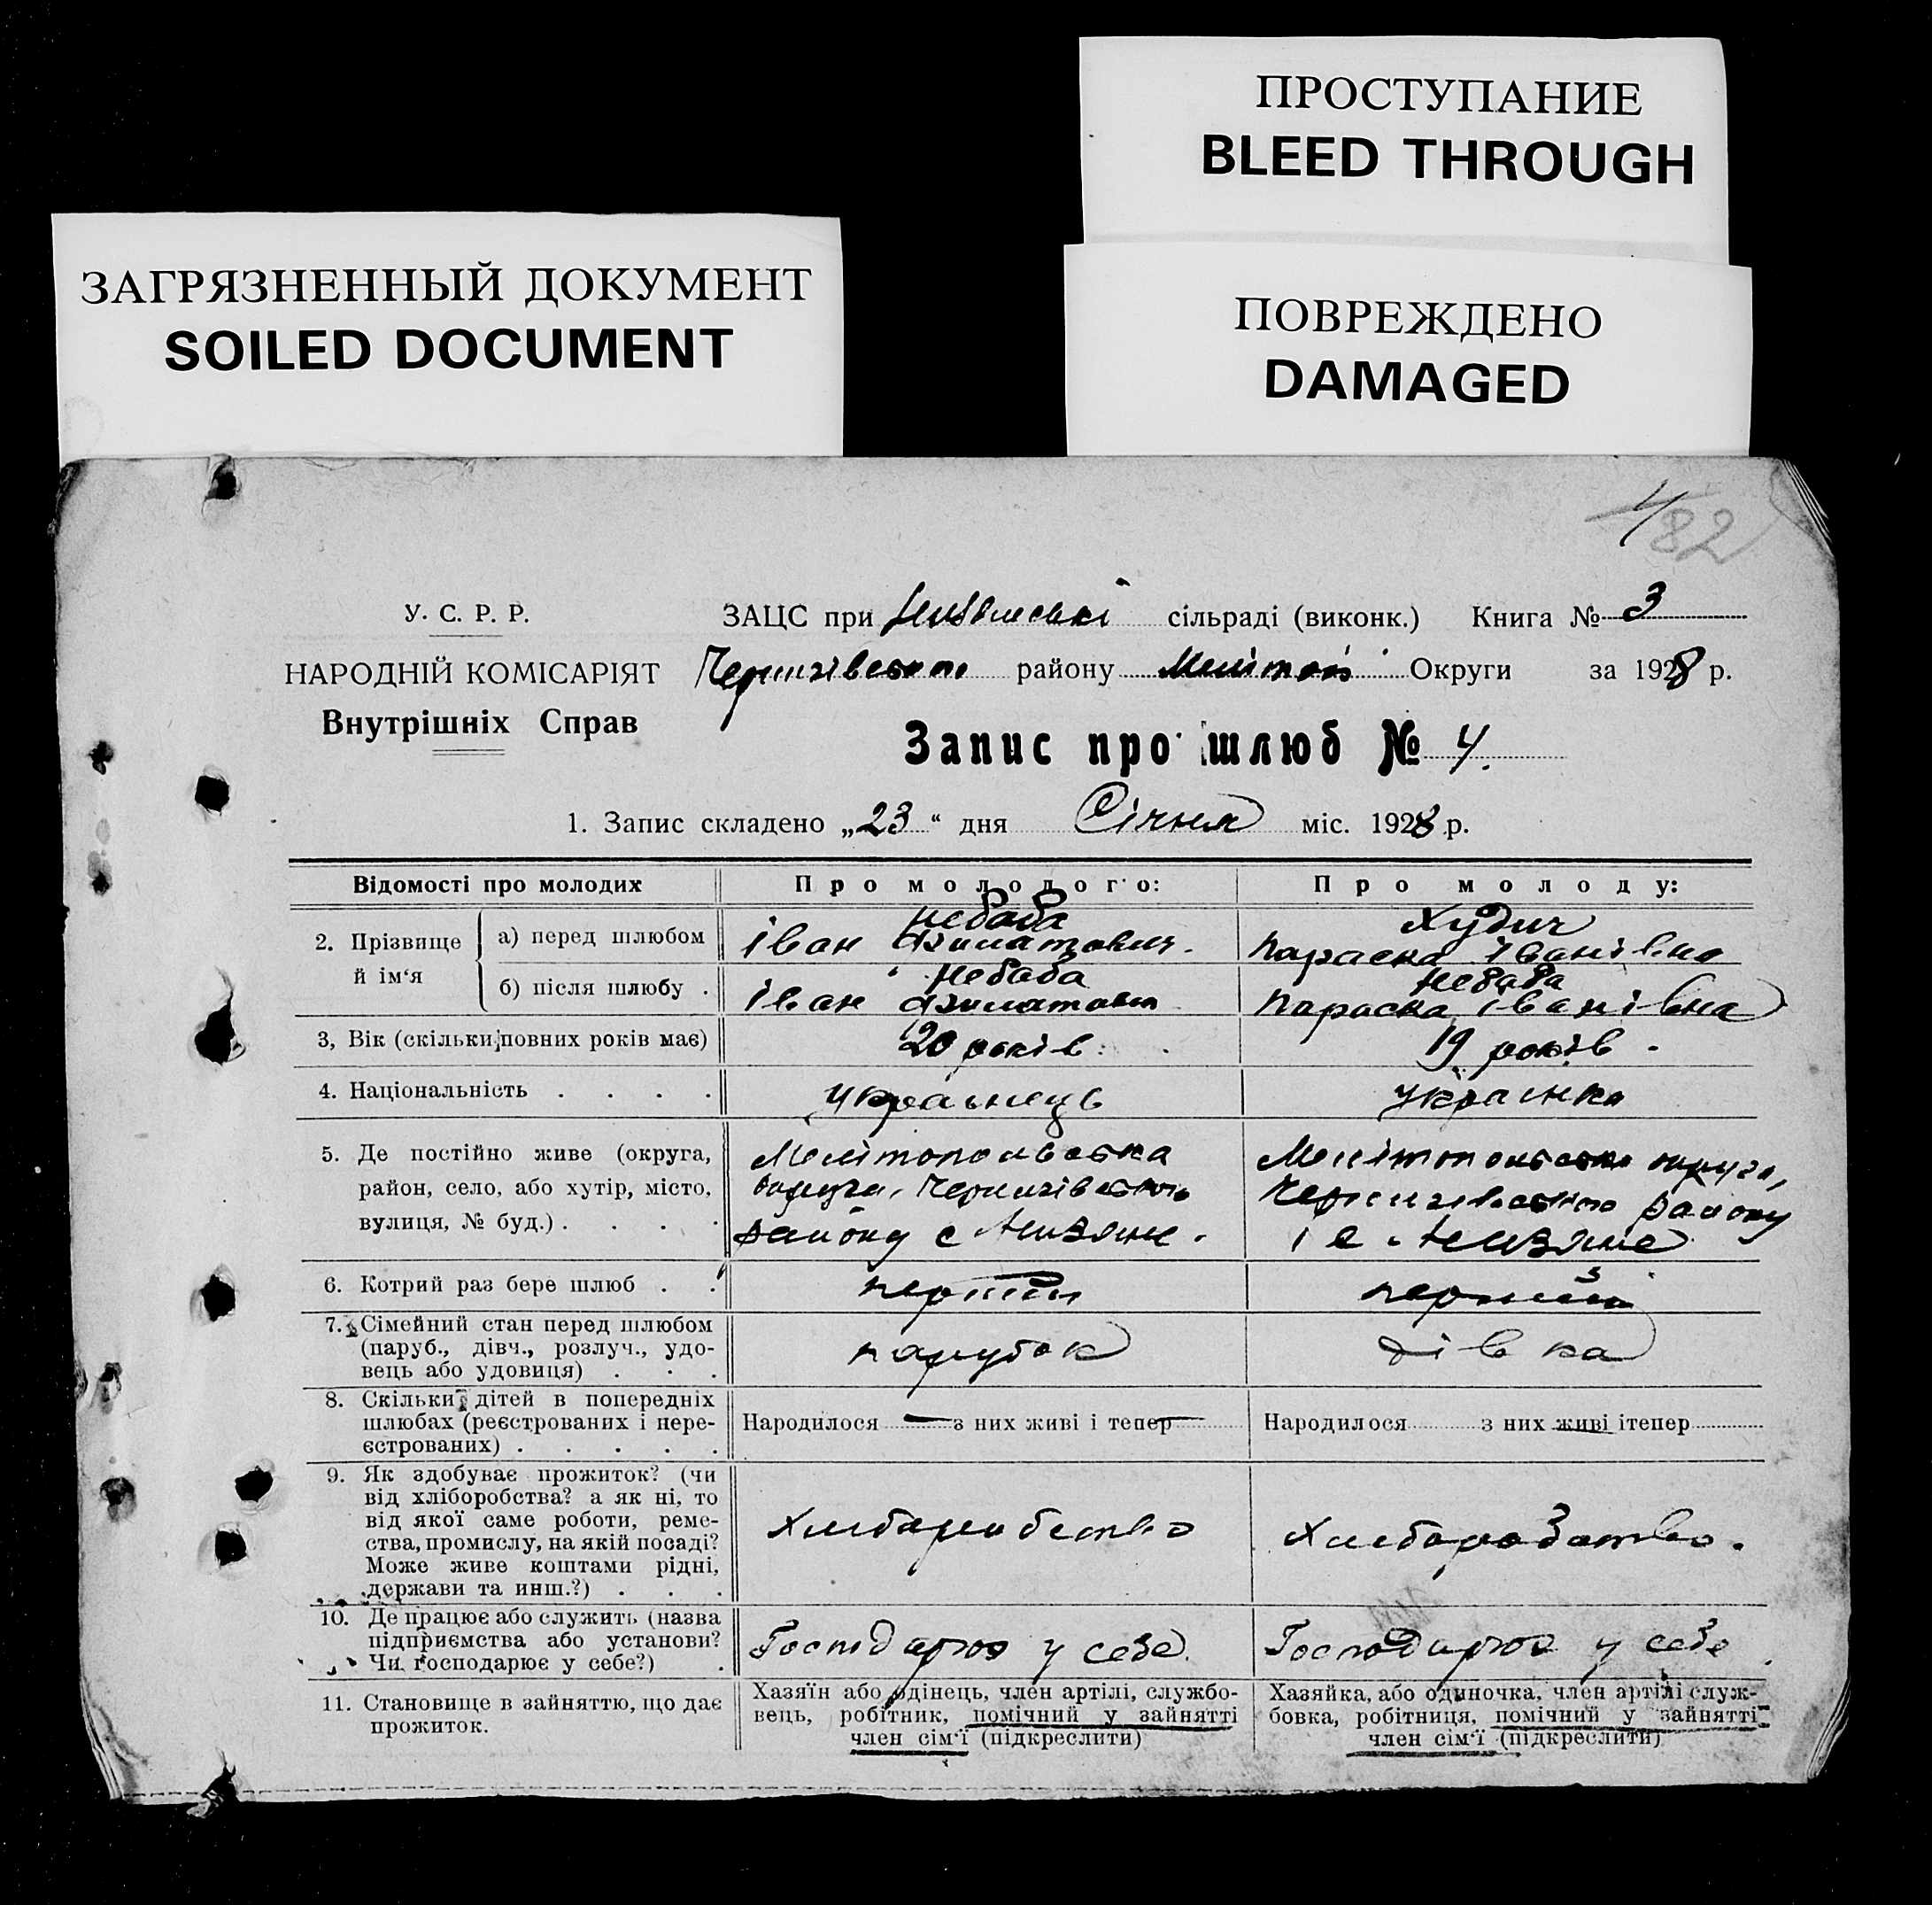 ПРОСТУПАНИЕ
BLEED THROUGH
ЗАГРЯЗНЕННЫЙ ДОКУМЕНТ
SOILED DOCUMENT
ПОВРЕЖДЕНО
DAMAGED
82
У. С. Р. Р.
НАРОДНІЙ КОМІСАРІЯТ
Внутрішніх Справ
ЗАЦС при сільраді (виконк.) Книга № 3
Чернигівського району Мелітоп Округи за 1928 р.
Запис про шлюб № 4.
1. Запис складено „23“ дня Січня міс. 1928 р.
Відомості про молодих
Про молодого:
Про молоду:
2. Прізвище й ім'я
а) перед шлюбом
Небаба
Іван
Худич
Параска Іванівна
б) після шлюбу .
Небаба
Іван
Небаба
Параска Іванівна
3, Вік (скільки повних років має)
20 років
19 років.
4. Національність . . . .
українець
українка
5. Де постійно живе (округа,
район, село, або хутір, місто,
вулиця, № буд.) . . . .
Мелітопольська
округа, Чернигівського
району с
Мелітопольська округа,
Чернигівського району
с.
6. Котрий раз бере шлюб . .
перший
перший
7. Сімейний стан перед шлюбом
(паруб., дівч., розлуч., удо-
вець або удовиця) . . .
парубок
дівка
8. Скільки дітей в попередніх
шлюбах (реєстрованих і нере-
єстрованих) . . . . .
Народилося — з них живі і тепер —
Народилося з них живі ітепер
9. Як здобуває прожиток? (чи
від хліборобства? а як ні, то
від якої саме роботи, реме-
ства, промислу, на якій посаді?
Може живе коштами рідні,
держави та инш.?) . . .
Хлібаробство
Хлібаробство.
10. Де працює або служить (назва
підприємства або установи?
Чи господарює у себе?) .
Господарює у себе.
Господарює у себе.
11. Становище в зайняттю, що дає
прожиток.
Хазяїн або одінець, член артілі, службо-
вець, робітник, помічний у зайнятті
член сім'ї (підкреслити)
Хазяйка, або одиночка, член артілі служ-
бовка, робітниця, помічний у зайнятті
член сім'ї (підкреслити)